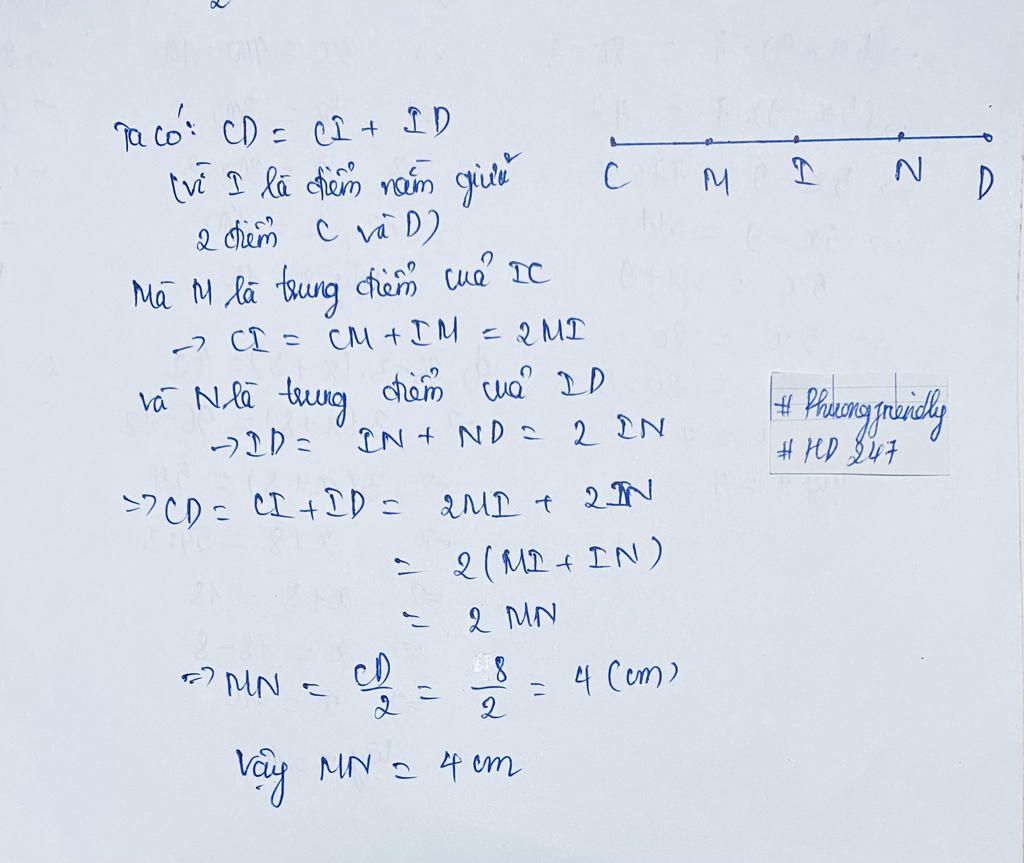 2
Ta có: CD = CI + ID
(vì I là điểm nằm giữa
2 điểm C và D)
C M I N D
Mà M là trung điểm của IC
→ CI = CM + IM = 2MI
và N là trung điểm của ID
→ ID = IN + ND = 2 IN
# Phuongfriendly
# HD 247
=> CD = CI + ID = 2MI + 2IN
= 2(MI + IN)
= 2 MN
=> MN = CD/2 = 8/2 = 4 (cm)
Vậy MN = 4 cm